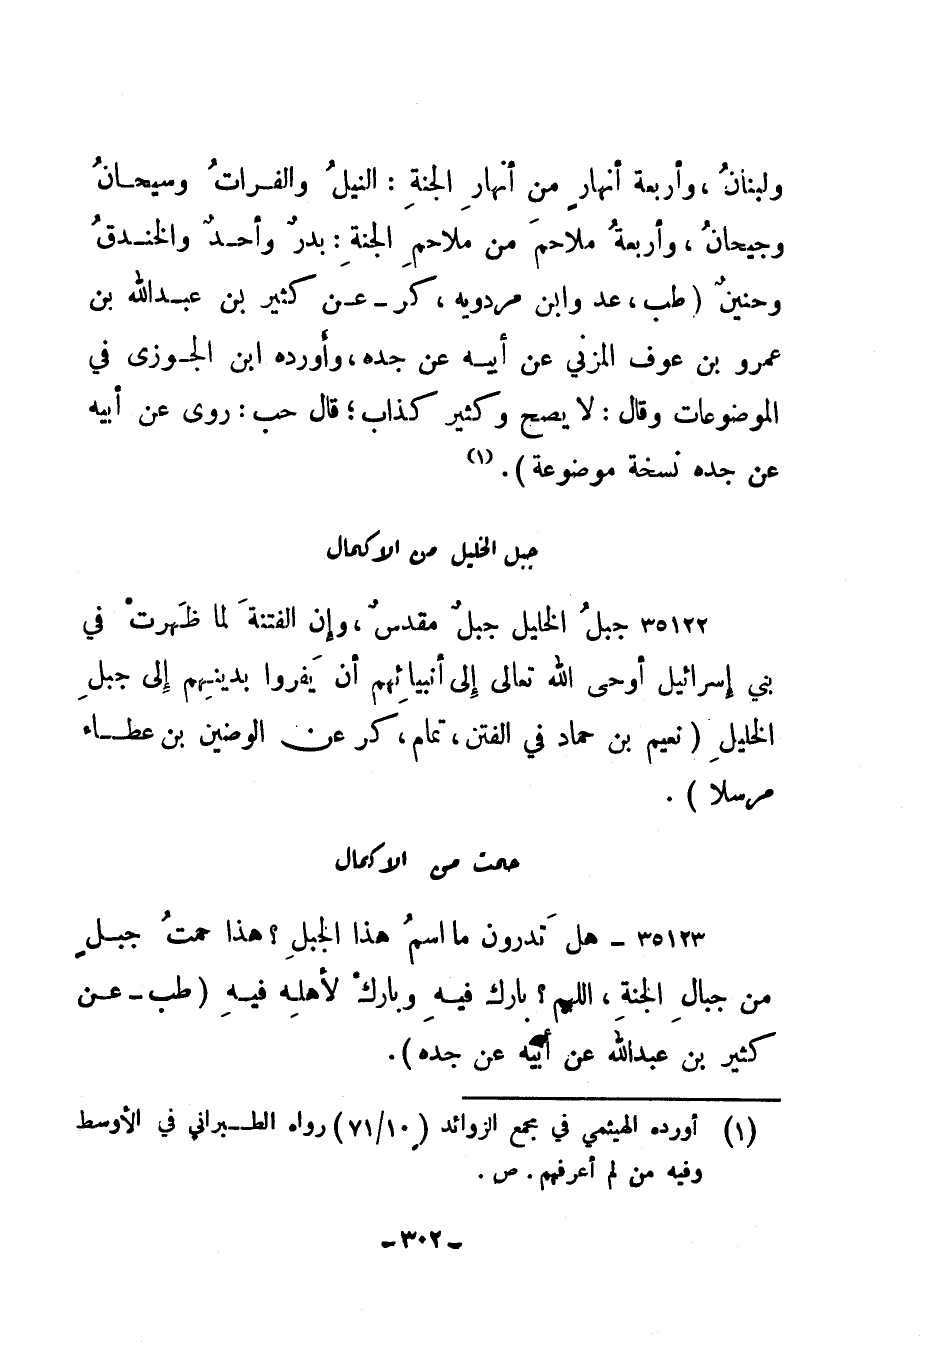 ولبنانُ ، وأربعة أنهارٍ من أنهارِ الجنةِ : النيلُ والفراتُ وسيحانُ
وجيحانُ ، وأربعةُ ملاحمَ من ملاحمِ الجنةِ : بدرٌ وأحدٌ والخندقُ
وحنينٌ ( طب ، عد وابن مردويه ، كر - عن كثير بن عبدالله بن
عمرو بن عوف المزني عن أبيه عن جده ، وأورده ابن الجوزى في
الموضوعات وقال : لا يصح وكثير كذاب ؛ قال حب : روى عن أبيه
عن جده نسخة موضوعة ) . (١)
جبل الخليل من الاكمال
٣٥١٢٢ جبلُ الخليل جبلٌ مقدسٌ ، وإن الفتنةَ لما ظَهرتْ في
بني إسرائيل أوحى الله تعالى إلى أنبيائِهم أن يَفروا بدينِهم إلى جبلِ
الخليلِ ( نعيم بن حماد في الفتن ، تمام ، كر عن الوضين بن عطاء
مرسلا ) .
حمت من الاكمال
٣٥١٢٣ - هل تَدرون ما اسمُ هذا الجبلِ ؟ هذا حمتُ جبلٍ
من جبالِ الجنةِ ، اللهم ؟ بارك فيهِ وباركْ لأهلِه فيهِ ( طب - عن
كثير بن عبدالله عن أبيه عن جده ) .
(١) أورده الهيثمي في مجمع الزوائد ( ٧١/١٠ ) رواه الطبراني في الأوسط
وفيه من لم أعرفهم . ص .
- ٣٠٢ -